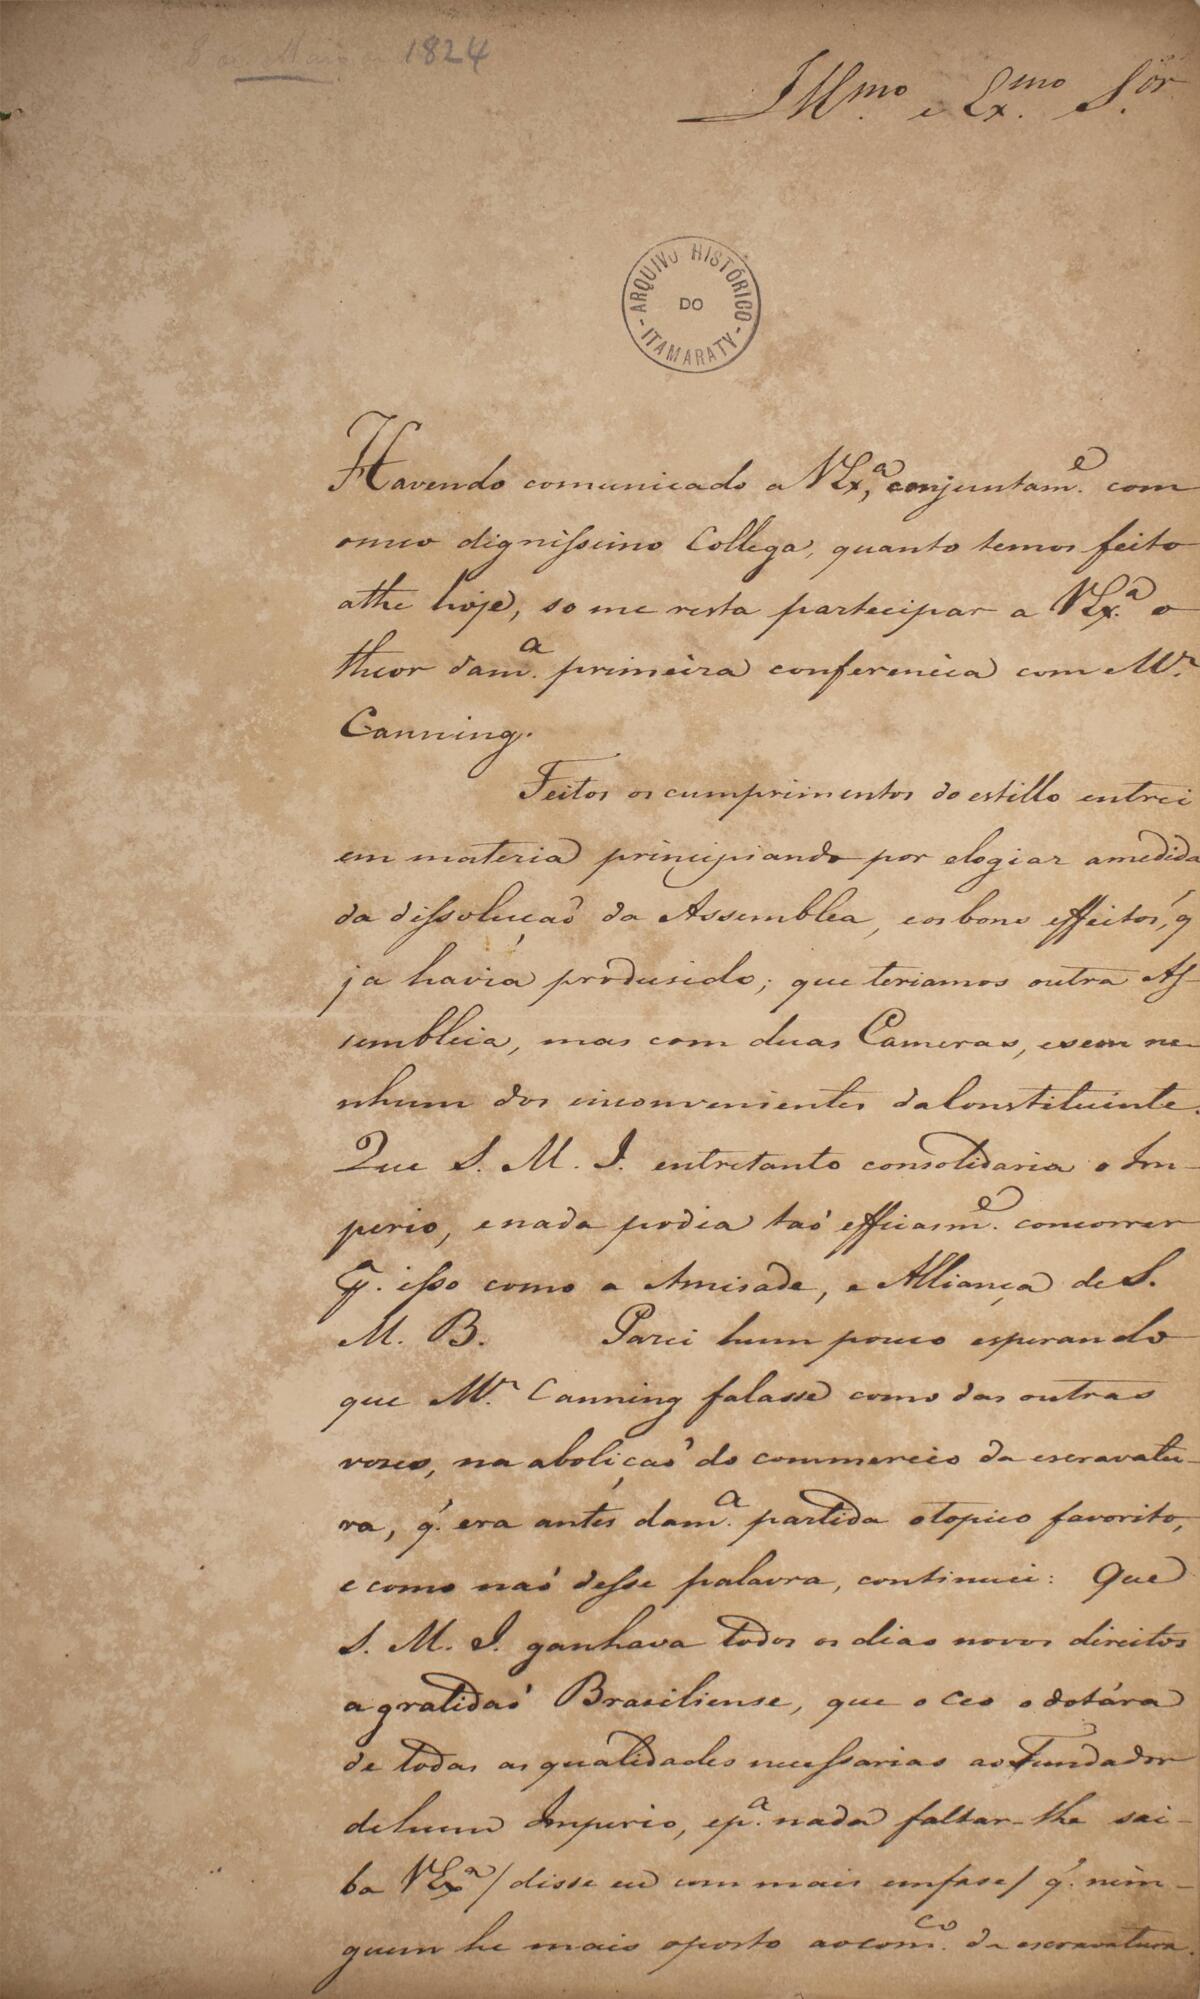 8 de Maio de 1824
Ill.mo e Ex.mo S.or
ARQUIVO HISTÓRICO
DO
- ITAMARATY -
Havendo comunicado a VEx.a, conjuntam.e com
omeo digniſsimo Collega, quanto temos feito
athe hoje, so me resta partecipar a VEx.a o
theor dam.a primeira conferencia com Mr.
Canning.
Feitos os cumprimentos do estillo entrei
em materia principiando por elogiar amedida
da diſsoluçaõ da Assemblea, eos bons effeitos, q'
ja havia produsido; que teriamos outra Aſ-
sembleia, mas com duas Cameras, esem ne-
nhum dos inconvenientes daConstituinte.
Que S. M. I. entretanto consolidaria o Im-
perio, enada podia taõ efficasm.e concorrer
p.a iſso como a Amisade, e Alliança de S.
M. B. Parei hum pouco esperando
que Mr. Canning falasse como das outras
veses, na aboliçaõ do commercio da escravatu-
ra, q' era antes dam.a partida otopico favorito,
e como naõ deſse palavra, continuei: Que
S. M. I. ganhava todos os dias novos direitos
agratidaõ Brasiliense, que o Ceo odotára
de todas as qualidades neceſsarias aoFundador
dehum Imperio, ep.a nada faltar-lhe sai-
ba VEx.a / disse eu com mais emfase / q' nin-
guem he mais oposto aocom.co da escravatura.